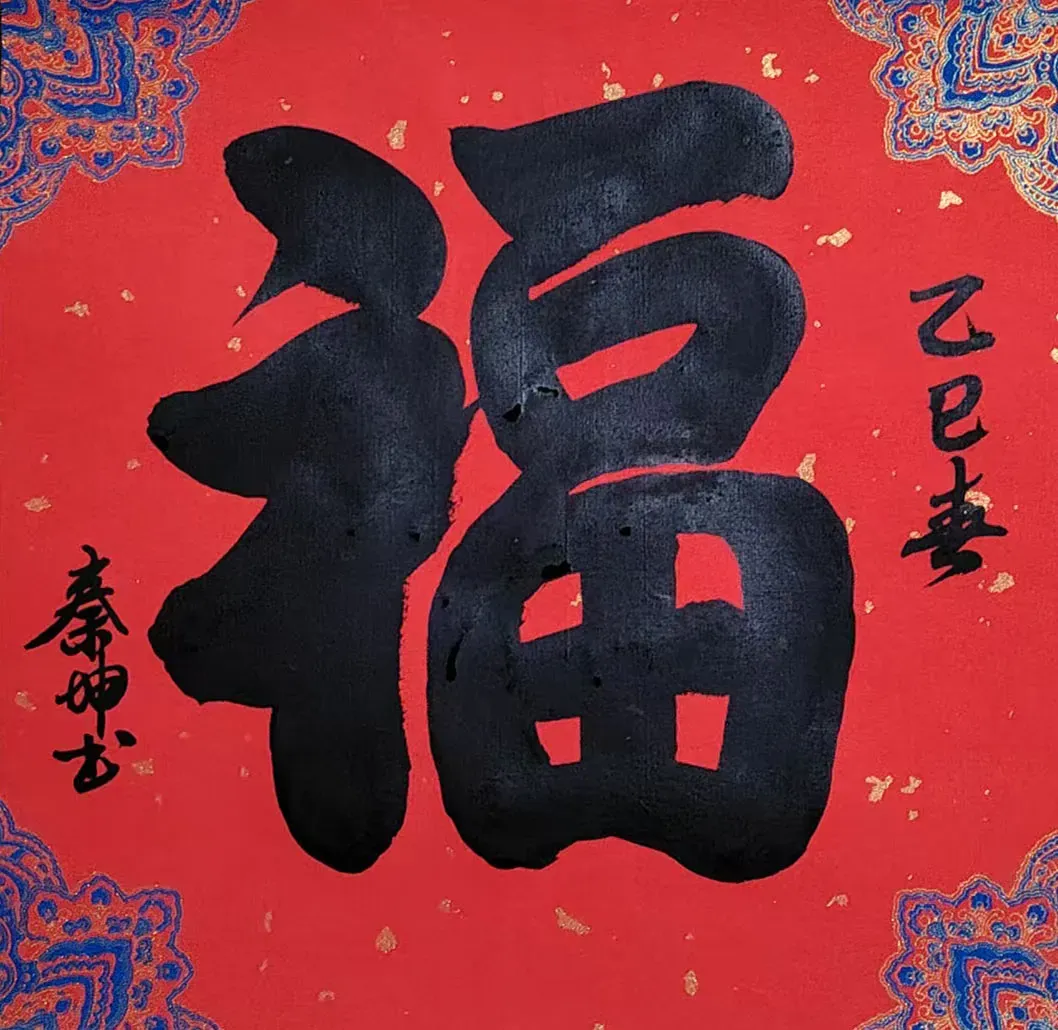 福
乙巳春
秦坤书